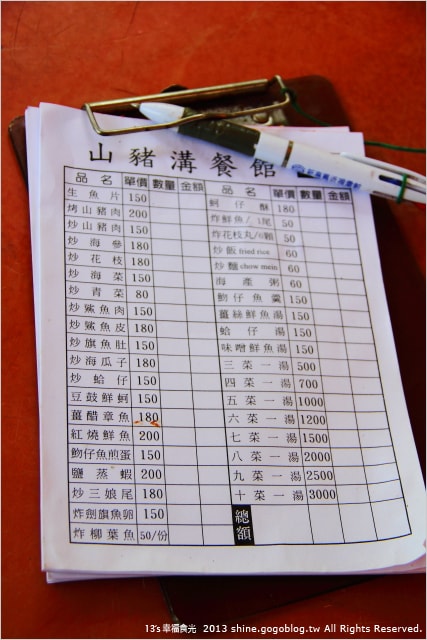 山豬溝餐館
品名 單價 數量 金額
生魚片 150
烤山豬肉 200
炒山豬肉 150
炒海參 180
炒花枝 180
炒海菜 150
炒青菜 80
炒鯊魚肉 150
炒鯊魚皮 180
炒旗魚肚 150
炒海瓜子 180
炒蛤仔 150
豆鼓鮮蚵 150
薑醋章魚 180
紅燒鮮魚 200
魩仔魚煎蛋 150
鹽蒸蝦 200
炒三娘尾 180
炸劍旗魚卵 150
炸柳葉魚 50/份
品名 單價 數量 金額
蚵仔酥 180
炸鮮魚/1尾 50
炸花枝丸/6顆 50
炒飯 fried rice 60
炒麵 chow main 60
海產粥 60
魩仔魚羹 150
薑絲鮮魚湯 150
蛤仔湯 150
味噌鮮魚湯 150
三菜一湯 500
四菜一湯 700
五菜一湯 1000
六菜一湯 1200
七菜一湯 1500
八菜一湯 2000
九菜一湯 2500
十菜一湯 3000
總額
13's幸福食光 2013 shine.gogoblog.tw All Rights Reserved.